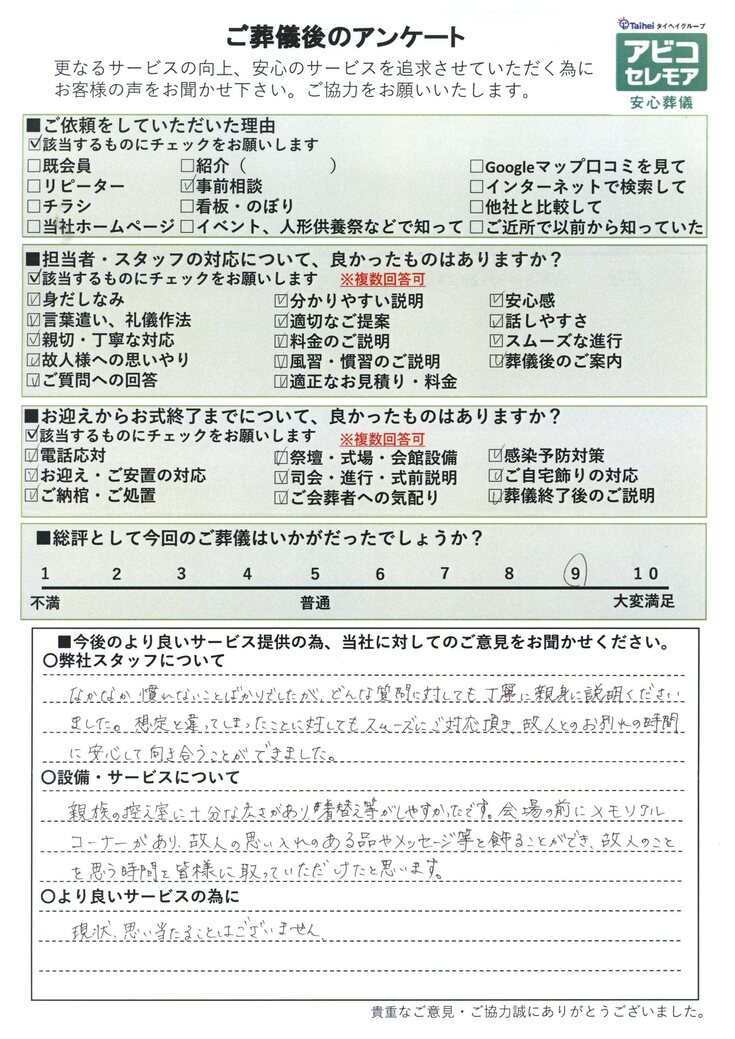 ご葬儀後のアンケート
Taihei タイヘイグループ
アビコ
セレモア
安心葬儀
更なるサービスの向上、安心のサービスを追求させていただく為に
お客様の声をお聞かせ下さい。ご協力をお願いいたします。
■ご依頼をしていただいた理由
☑該当するものにチェックをお願いします
□既会員 □紹介（　　　　　） □Googleマップ口コミを見て
□リピーター ☑事前相談 □インターネットで検索して
□チラシ □看板・のぼり □他社と比較して
□当社ホームページ □イベント、人形供養祭などで知って □ご近所で以前から知っていた
■担当者・スタッフの対応について、良かったものはありますか？
☑該当するものにチェックをお願いします ※複数回答可
☑身だしなみ ☑分かりやすい説明 ☑安心感
☑言葉遣い、礼儀作法 ☑適切なご提案 ☑話しやすさ
☑親切・丁寧な対応 ☑料金のご説明 ☑スムーズな進行
☑故人様への思いやり ☑風習・慣習のご説明 ☑葬儀後のご案内
☑ご質問への回答 ☑適正なお見積り・料金
■お迎えからお式終了までについて、良かったものはありますか？
☑該当するものにチェックをお願いします ※複数回答可
☑電話応対 ☑祭壇・式場・会館設備 ☑感染予防対策
☑お迎え・ご安置の対応 ☑司会・進行・式前説明 ☑ご自宅飾りの対応
☑ご納棺・ご処置 ☑ご会葬者への気配り ☑葬儀終了後のご説明
■総評として今回のご葬儀はいかがだったでしょうか？
1 2 3 4 5 6 7 8 9 10
不満 普通 大変満足
■今後のより良いサービス提供の為、当社に対してのご意見をお聞かせください。
〇弊社スタッフについて
なかなか慣れないことばかりでしたが、どんな質問に対しても丁寧に親身に説明ください
ました。想定と違ってしまったことに対してもスムーズにご対応頂き、故人とのお別れの時間
に安心して向き合うことができました。
〇設備・サービスについて
親族の控え室に十分な広さがあり着替え等がしやすかったです。会場の前にメモリアル
コーナーがあり、故人の思い入れのある品やメッセージ等を飾ることができ、故人のこと
を思う時間を皆様に取っていただけたと思います。
〇より良いサービスの為に
現状、思い当たることはございません。
貴重なご意見・ご協力誠にありがとうございました。